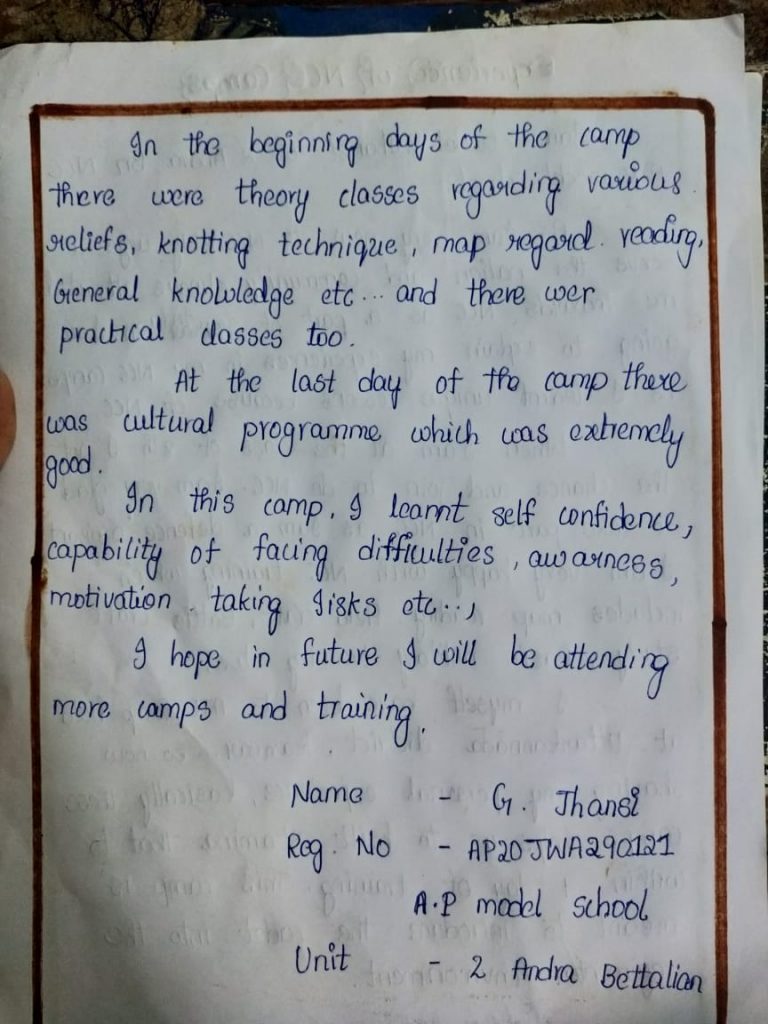 In the beginning days of the camp
there were theory classes regarding various
reliefs, knotting technique, map regard. reading,
General knowledge etc... and there wer
practical classes too.
At the last day of the camp there
was cultural programme which was extremely
good.
In this camp, I learnt self confidence,
capability of facing difficulties, awarness,
motivation taking risks etc..,
I hope in future I will be attending
more camps and training.
Name - G. Jhansi
Reg. No - AP20JWA290121
A.P model school
Unit - 2 Andra Bettalian